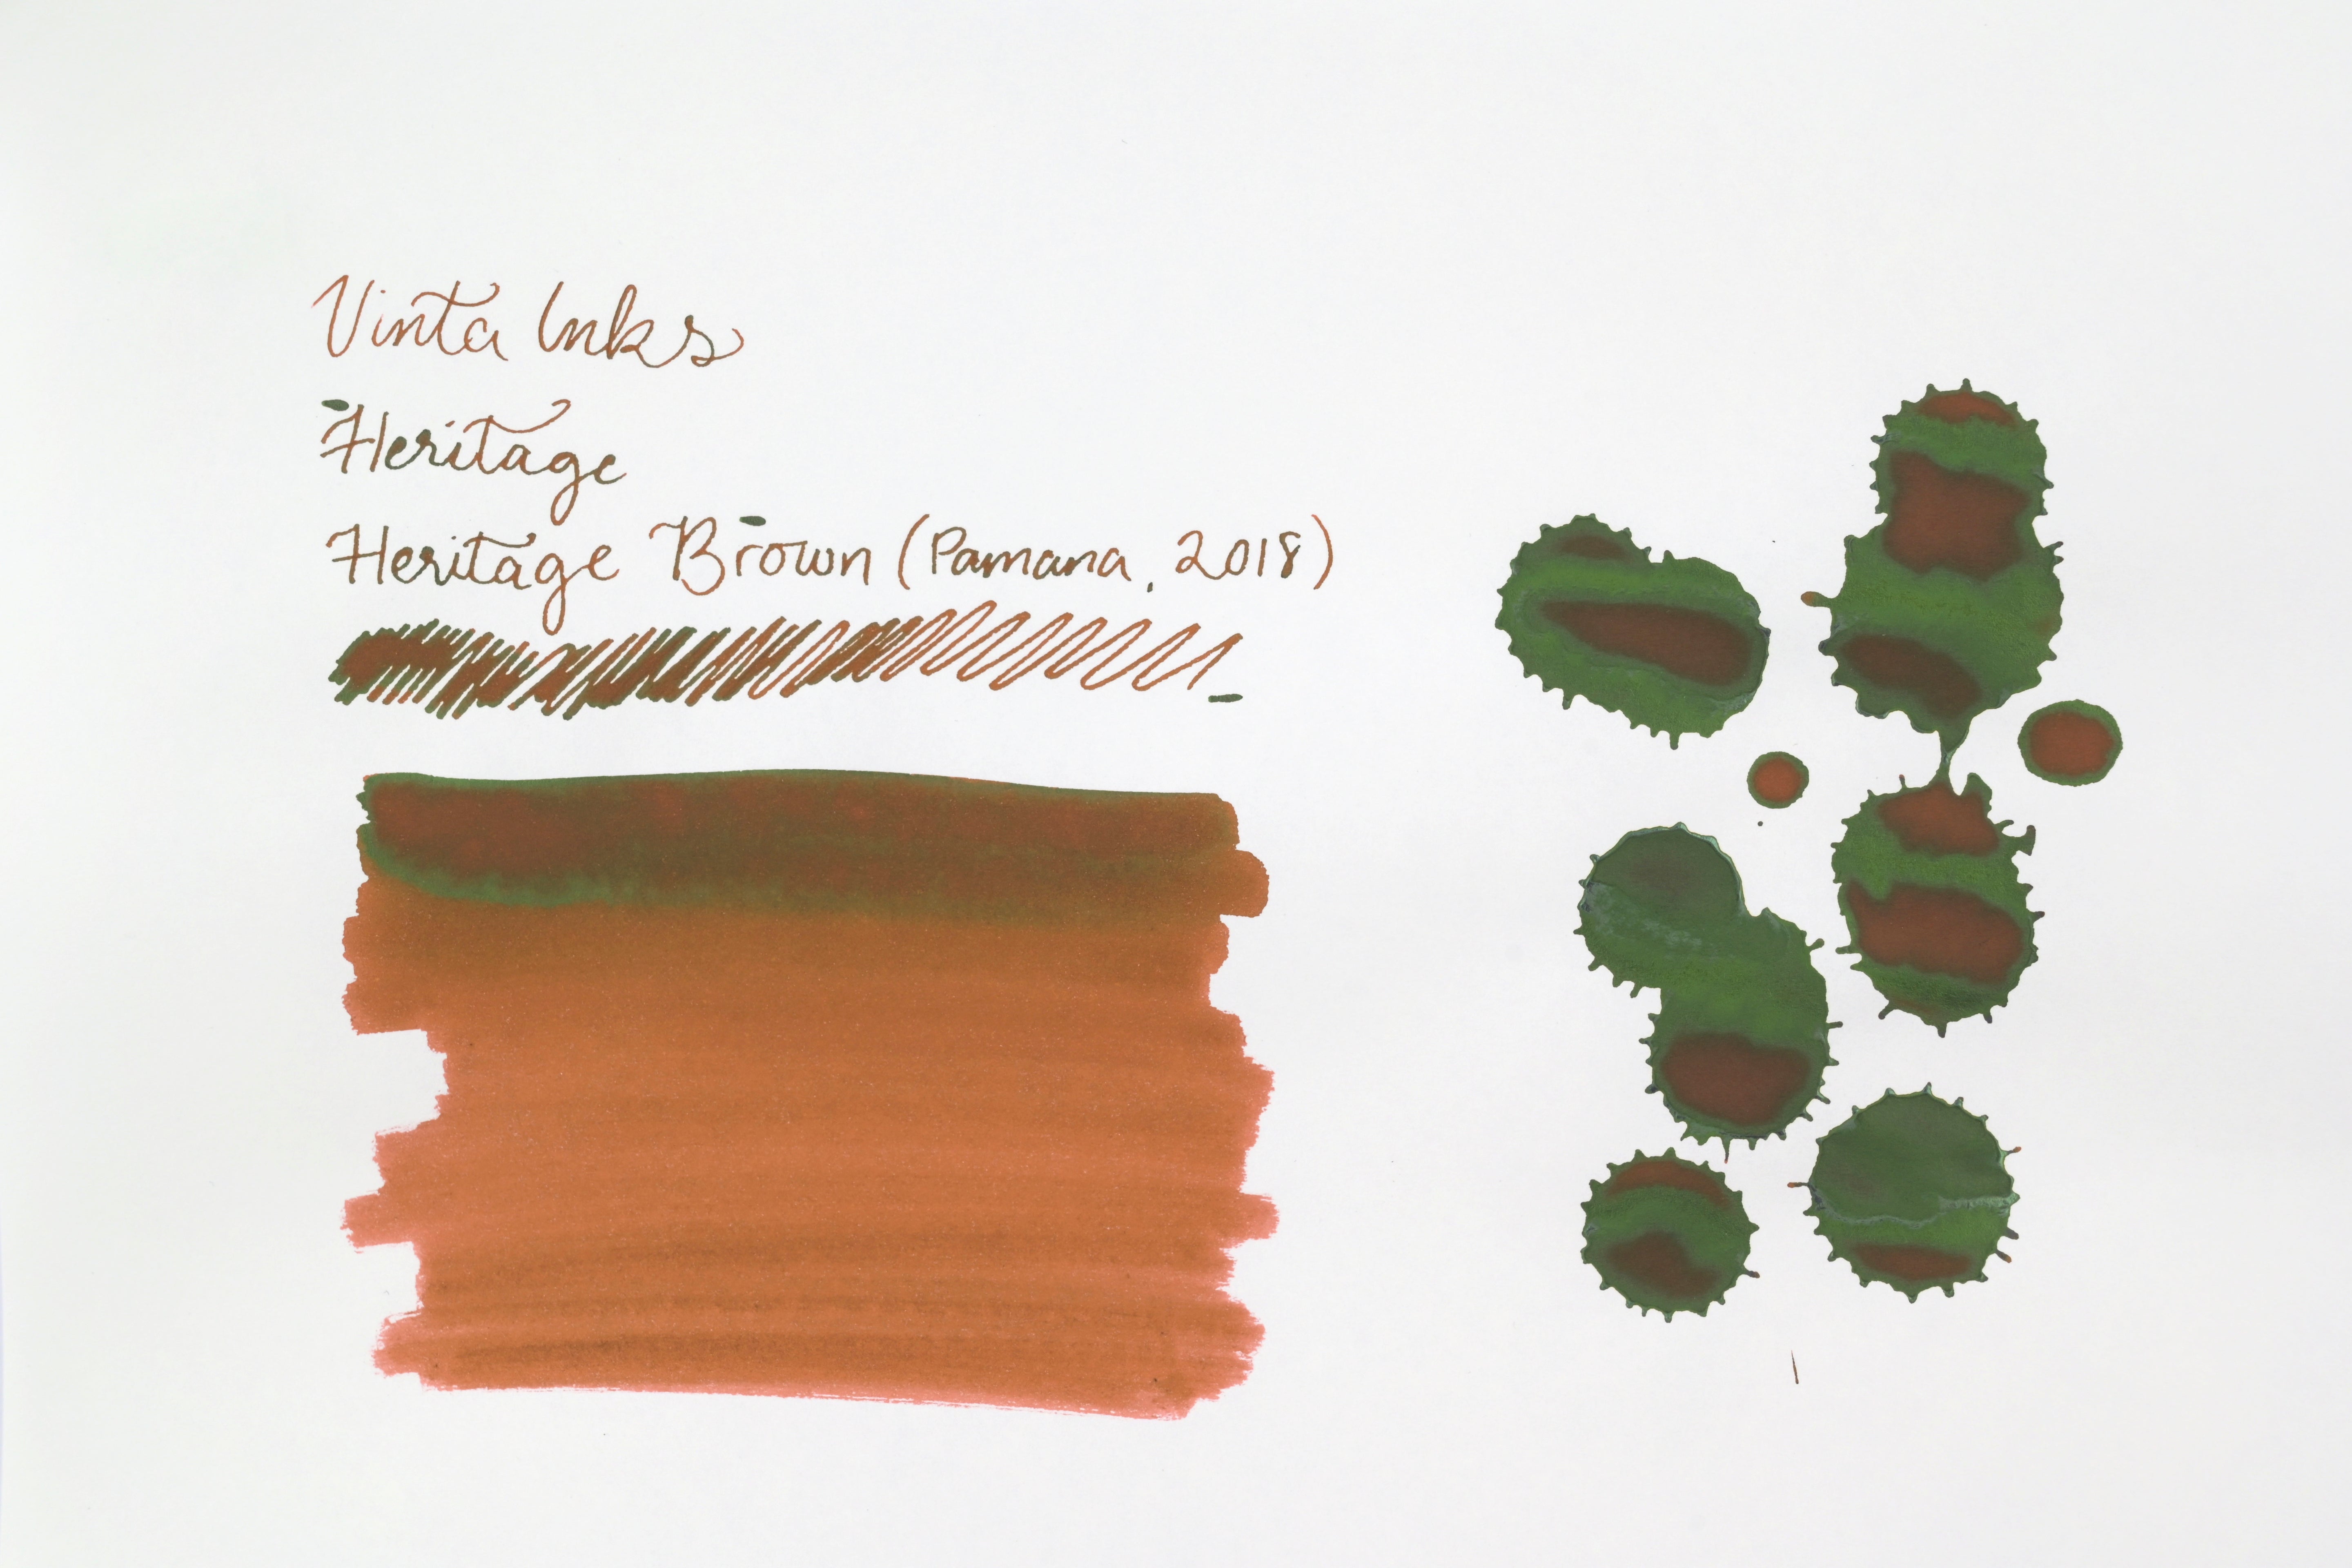 Vinta Inks
Heritage
Heritage Brown (Pamana, 2018)